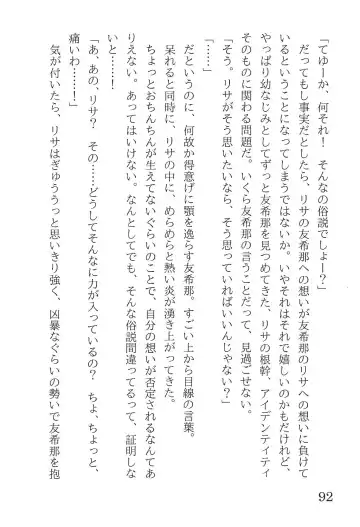 「てゆーか、何それ！　そんなの俗説でしょー？」
　だってもし事実だとしたら、リサの友希那への想いが友希那のリサへの想いに負けて
いるということになってしまうではないか。いやそれはそれで嬉しいのかもだけれど、
やっぱり幼なじみとしてずっと友希那を見つめてきた、リサの根幹、アイデンティティ
そのものに関わる問題だ。いくら友希那の言うことだって、見過ごせない。
「そう。リサがそう思いたいなら、そう思っていればいいんじゃない？」
「……」
　だというのに、何故か得意げに顎を逸らす友希那。すごい上から目線の言葉。
　呆れると同時に、リサの中に、めらめらと熱い炎が湧き上がってきた。
　ちょっとおちんちんが生えてないぐらいのことで、自分の想いが否定されるなんてあ
りえない。あってはいけない。なんとしてでも、そんな俗説間違ってるって、証明しな
いと……！
「あ、あの、リサ？　その……どうしてそんなに力が入っているの？　ちょ、ちょっと、
痛いわ……！」
　気が付いたら、リサはぎゅううっと思いきり強く、凶暴なぐらいの勢いで友希那を抱
92